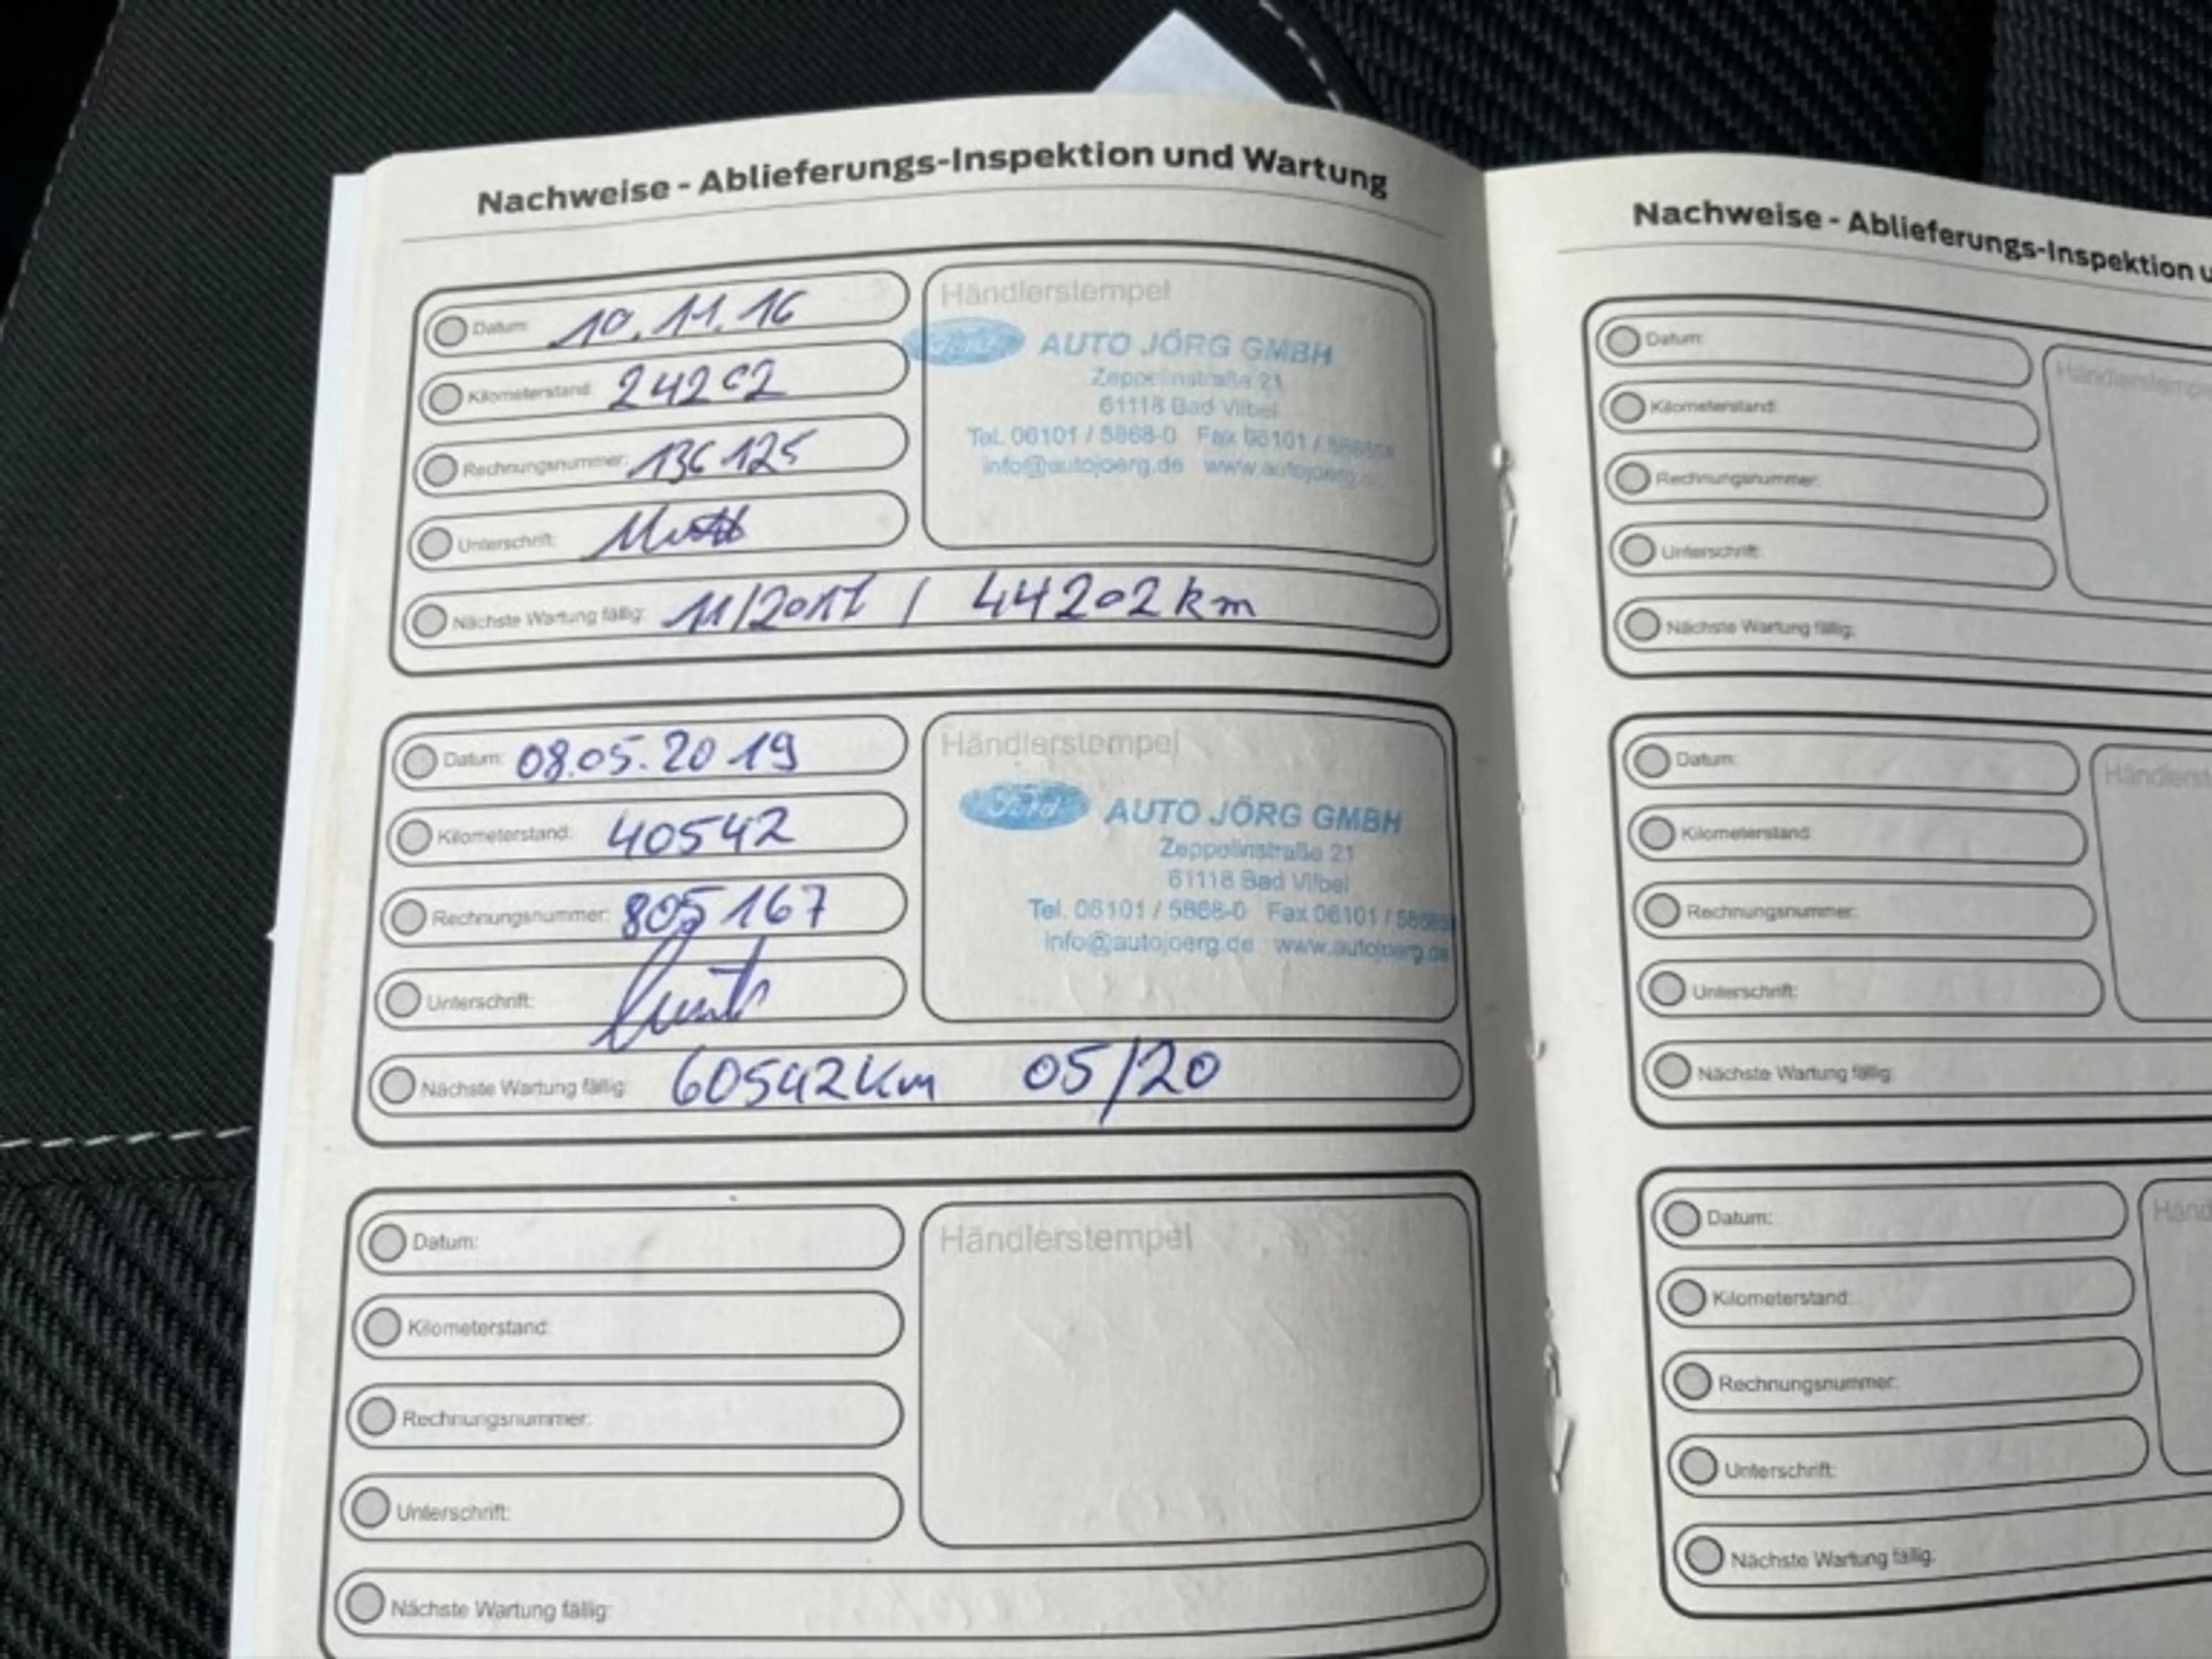 Nachweise - Ablieferungs-Inspektion und Wartung
Datum: 10.11.16
Kilometerstand: 24202
Rechnungsnummer: 136125
Unterschrift:
Nächste Wartung fällig: 11/2017 / 44202 km
Händlerstempel
Ford AUTO JÖRG GMBH
Zeppelinstraße 21
61118 Bad Vilbel
Tel. 06101 / 5868-0 Fax 06101 /
info@autojoerg.de www.autojoerg.
Datum: 08.05.2019
Kilometerstand: 40542
Rechnungsnummer: 805167
Unterschrift:
Nächste Wartung fällig: 60542 km 05/20
Händlerstempel
Ford AUTO JÖRG GMBH
Zeppelinstraße 21
61118 Bad Vilbel
Tel. 06101 / 5868-0 Fax 06101 /
info@autojoerg.de www.autojoerg.de
Datum:
Kilometerstand:
Rechnungsnummer:
Unterschrift:
Nächste Wartung fällig:
Händlerstempel
Nachweise - Ablieferungs-Inspektion u
Datum:
Kilometerstand:
Rechnungsnummer:
Unterschrift:
Nächste Wartung fällig:
Händlerstempe
Datum:
Kilometerstand:
Rechnungsnummer:
Unterschrift:
Nächste Wartung fällig:
Händlerst
Datum:
Kilometerstand:
Rechnungsnummer:
Unterschrift:
Nächste Wartung fällig:
Händ